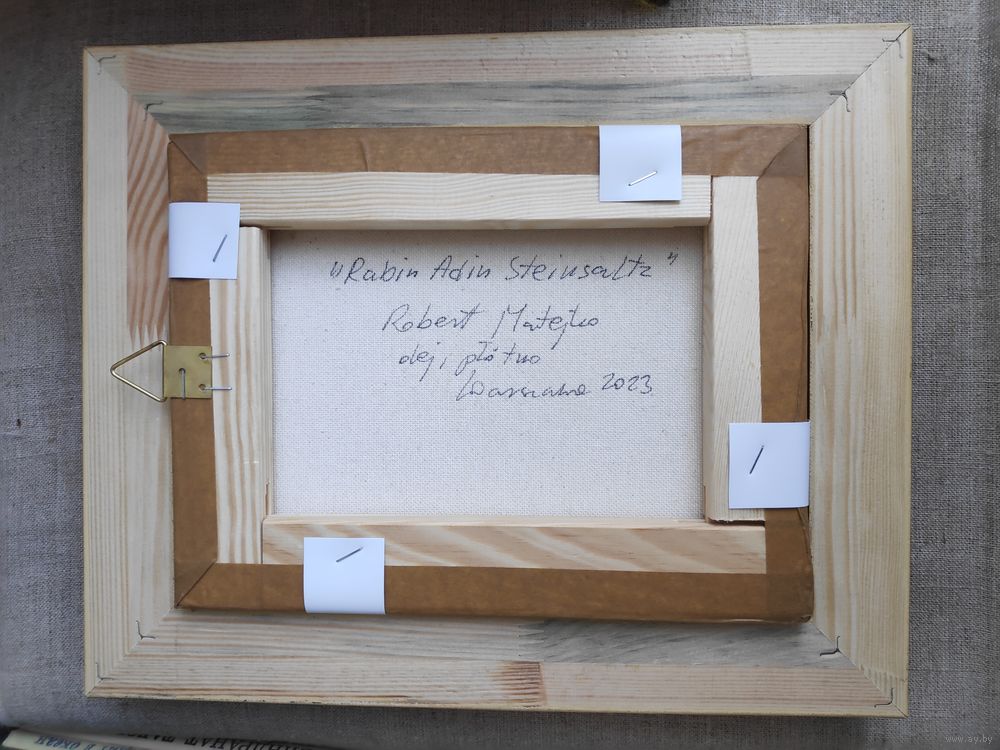 "Rabin Adin Steinsaltz"
Robert Matejko
olej, płótno
Warszawa 2023
www.ay.by